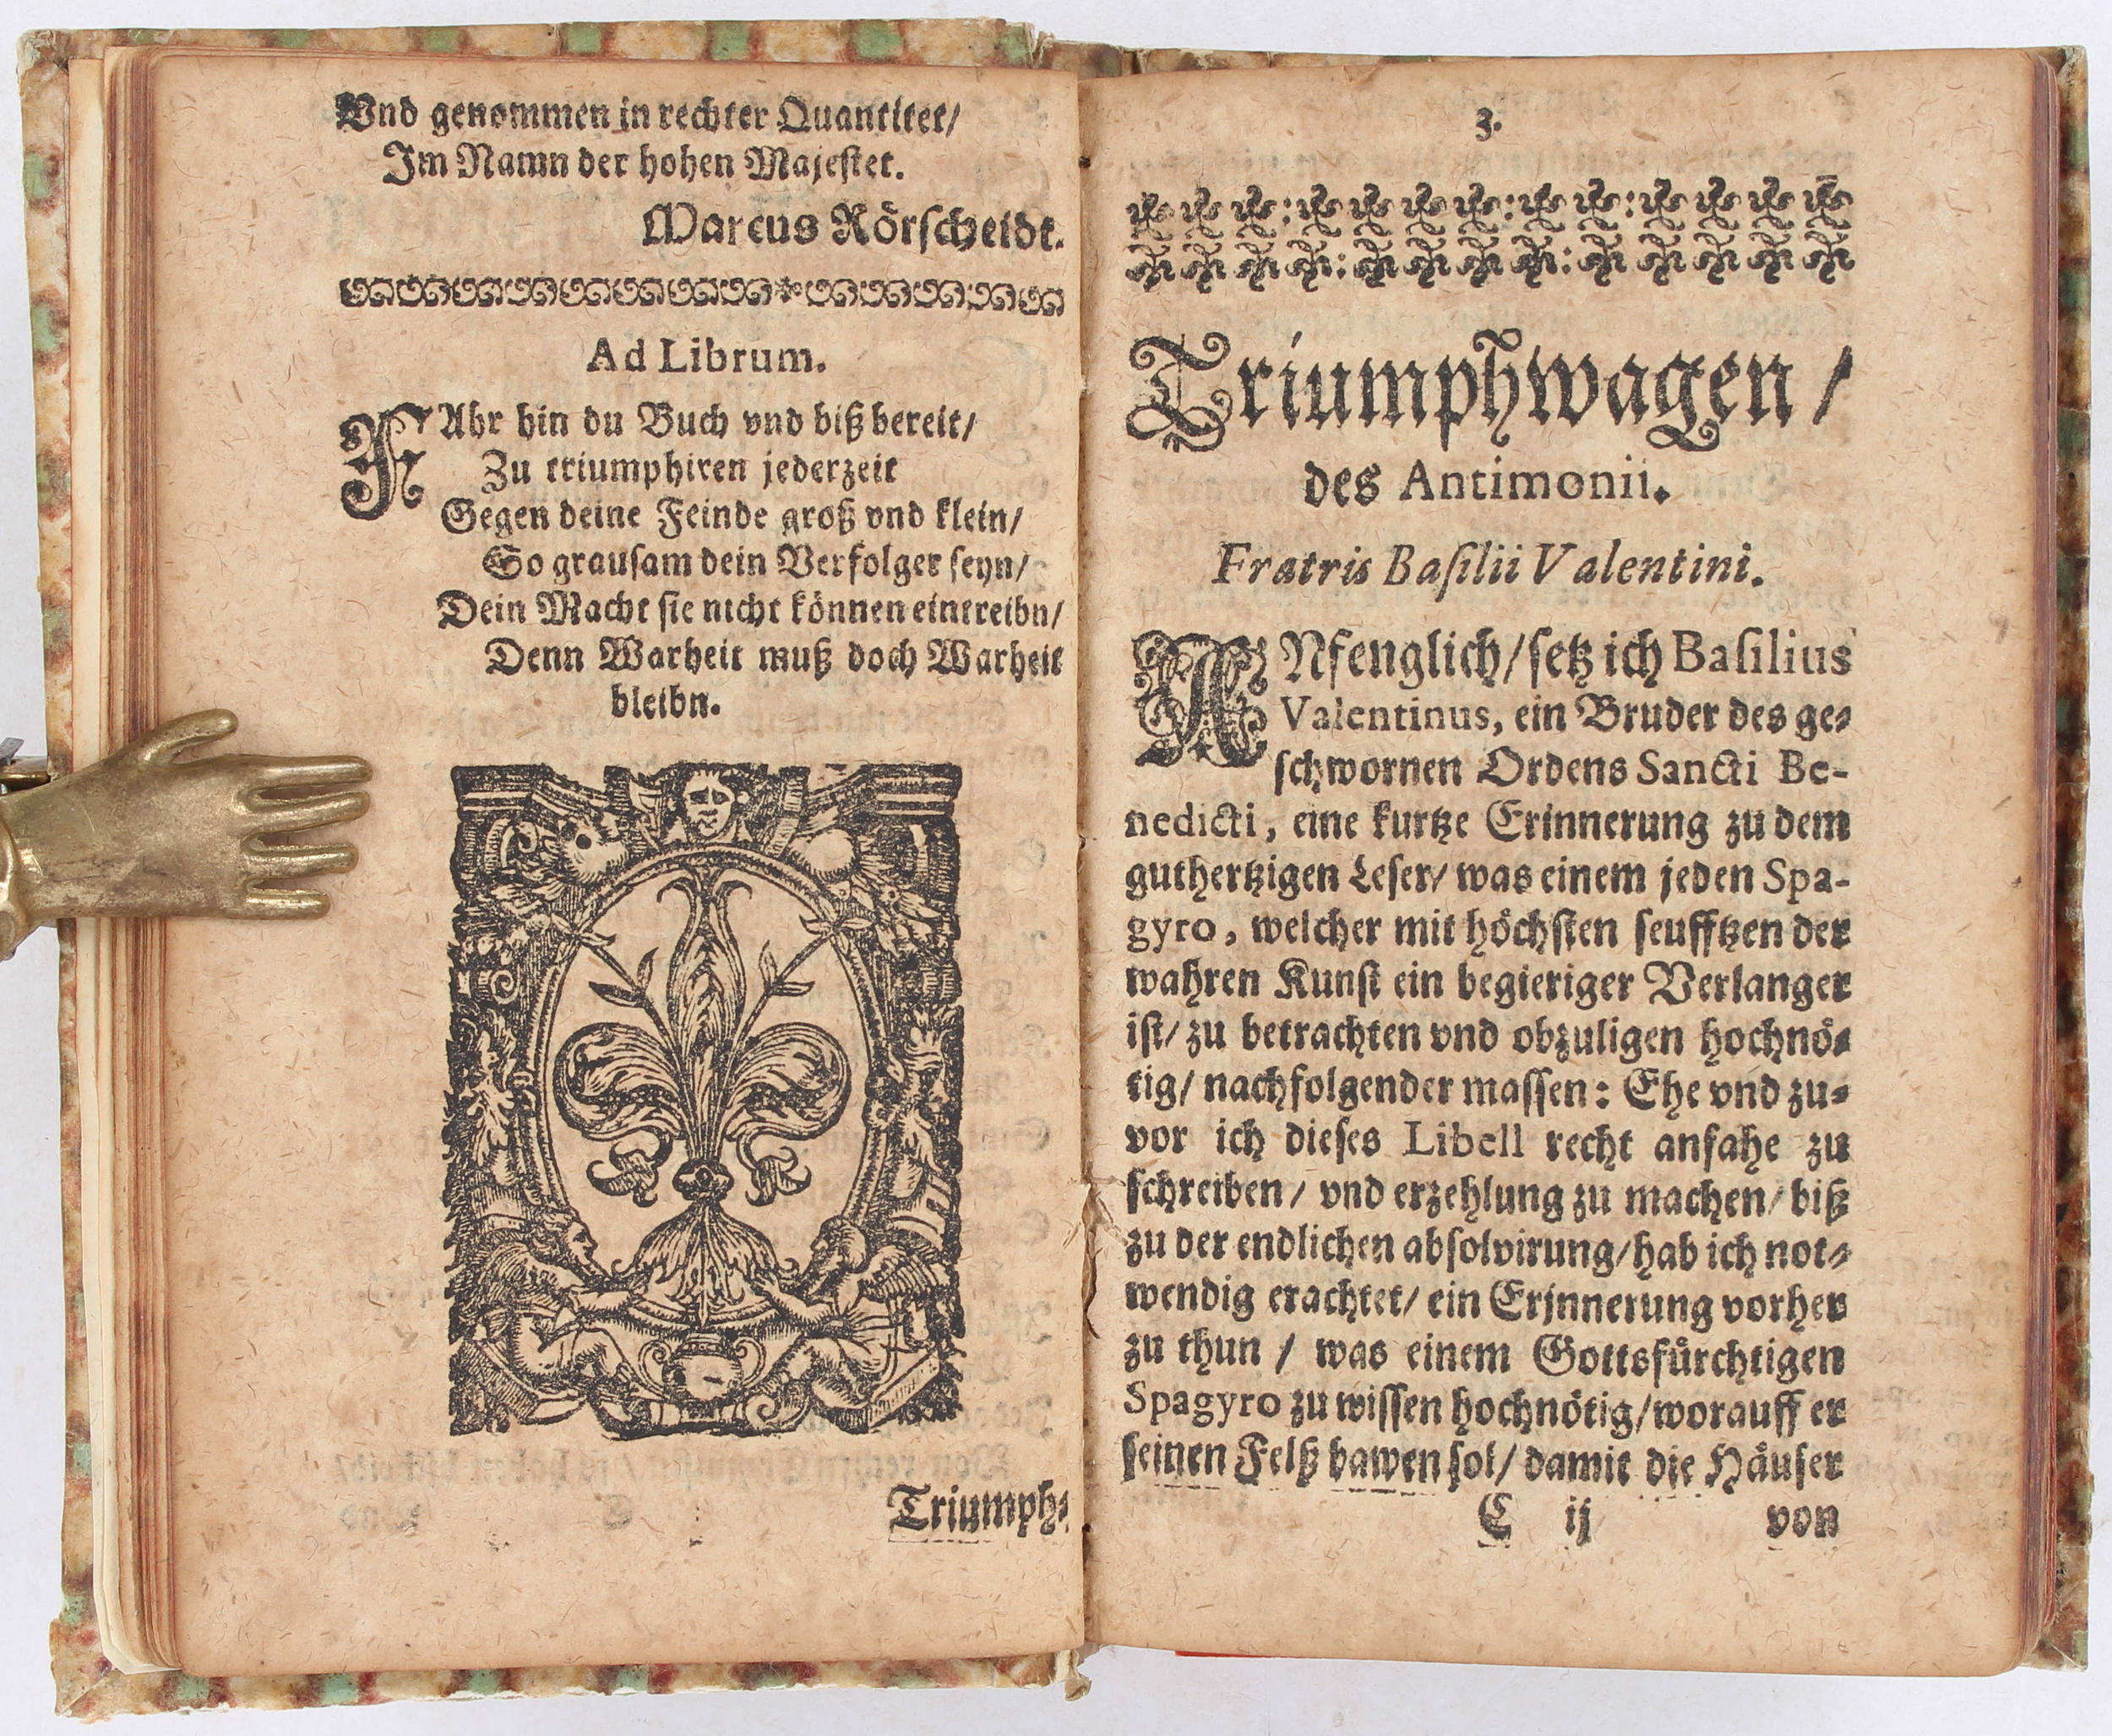 Vnd genommen in rechter Quantitet/
Im Namn der hohen Majestet.
Marcus Rörscheidt.
Ad Librum.
FAhr hin du Buch vnd biß bereit/
Zu triumphiren jederzeit
Gegen deine Feinde groß vnd klein/
So grausam dein Verfolger seyn/
Dein Macht sie nicht können eintreibn/
Denn Warheit muß doch Warheit
bleibn.
Triumph-
3.
Triumphwagen/
des Antimonii.
Fratris Basilii Valentini.
ANfenglich/ setz ich Basilius
Valentinus, ein Bruder des ge-
schwornen Ordens Sancti Be-
nedicti, eine kurtze Erinnerung zu dem
guthertzigen Leser/ was einem jeden Spa-
gyro, welcher mit höchsten seufftzen der
wahren Kunst ein begieriger Verlanger
ist/ zu betrachten vnd obzuligen hochnö-
tig/ nachfolgender massen: Ehe vnd zu-
vor ich dieses Libell recht anfahe zu
schreiben/ vnd erzehlung zu machen/ biß
zu der endlichen absolvirung/ hab ich not-
wendig erachtet/ ein Erjnnerung vorher
zu thun / was einem Gottsfürchtigen
Spagyro zu wissen hochnötig/ worauff er
seinen Felß bawen sol/ damit die Häuser
C ij von